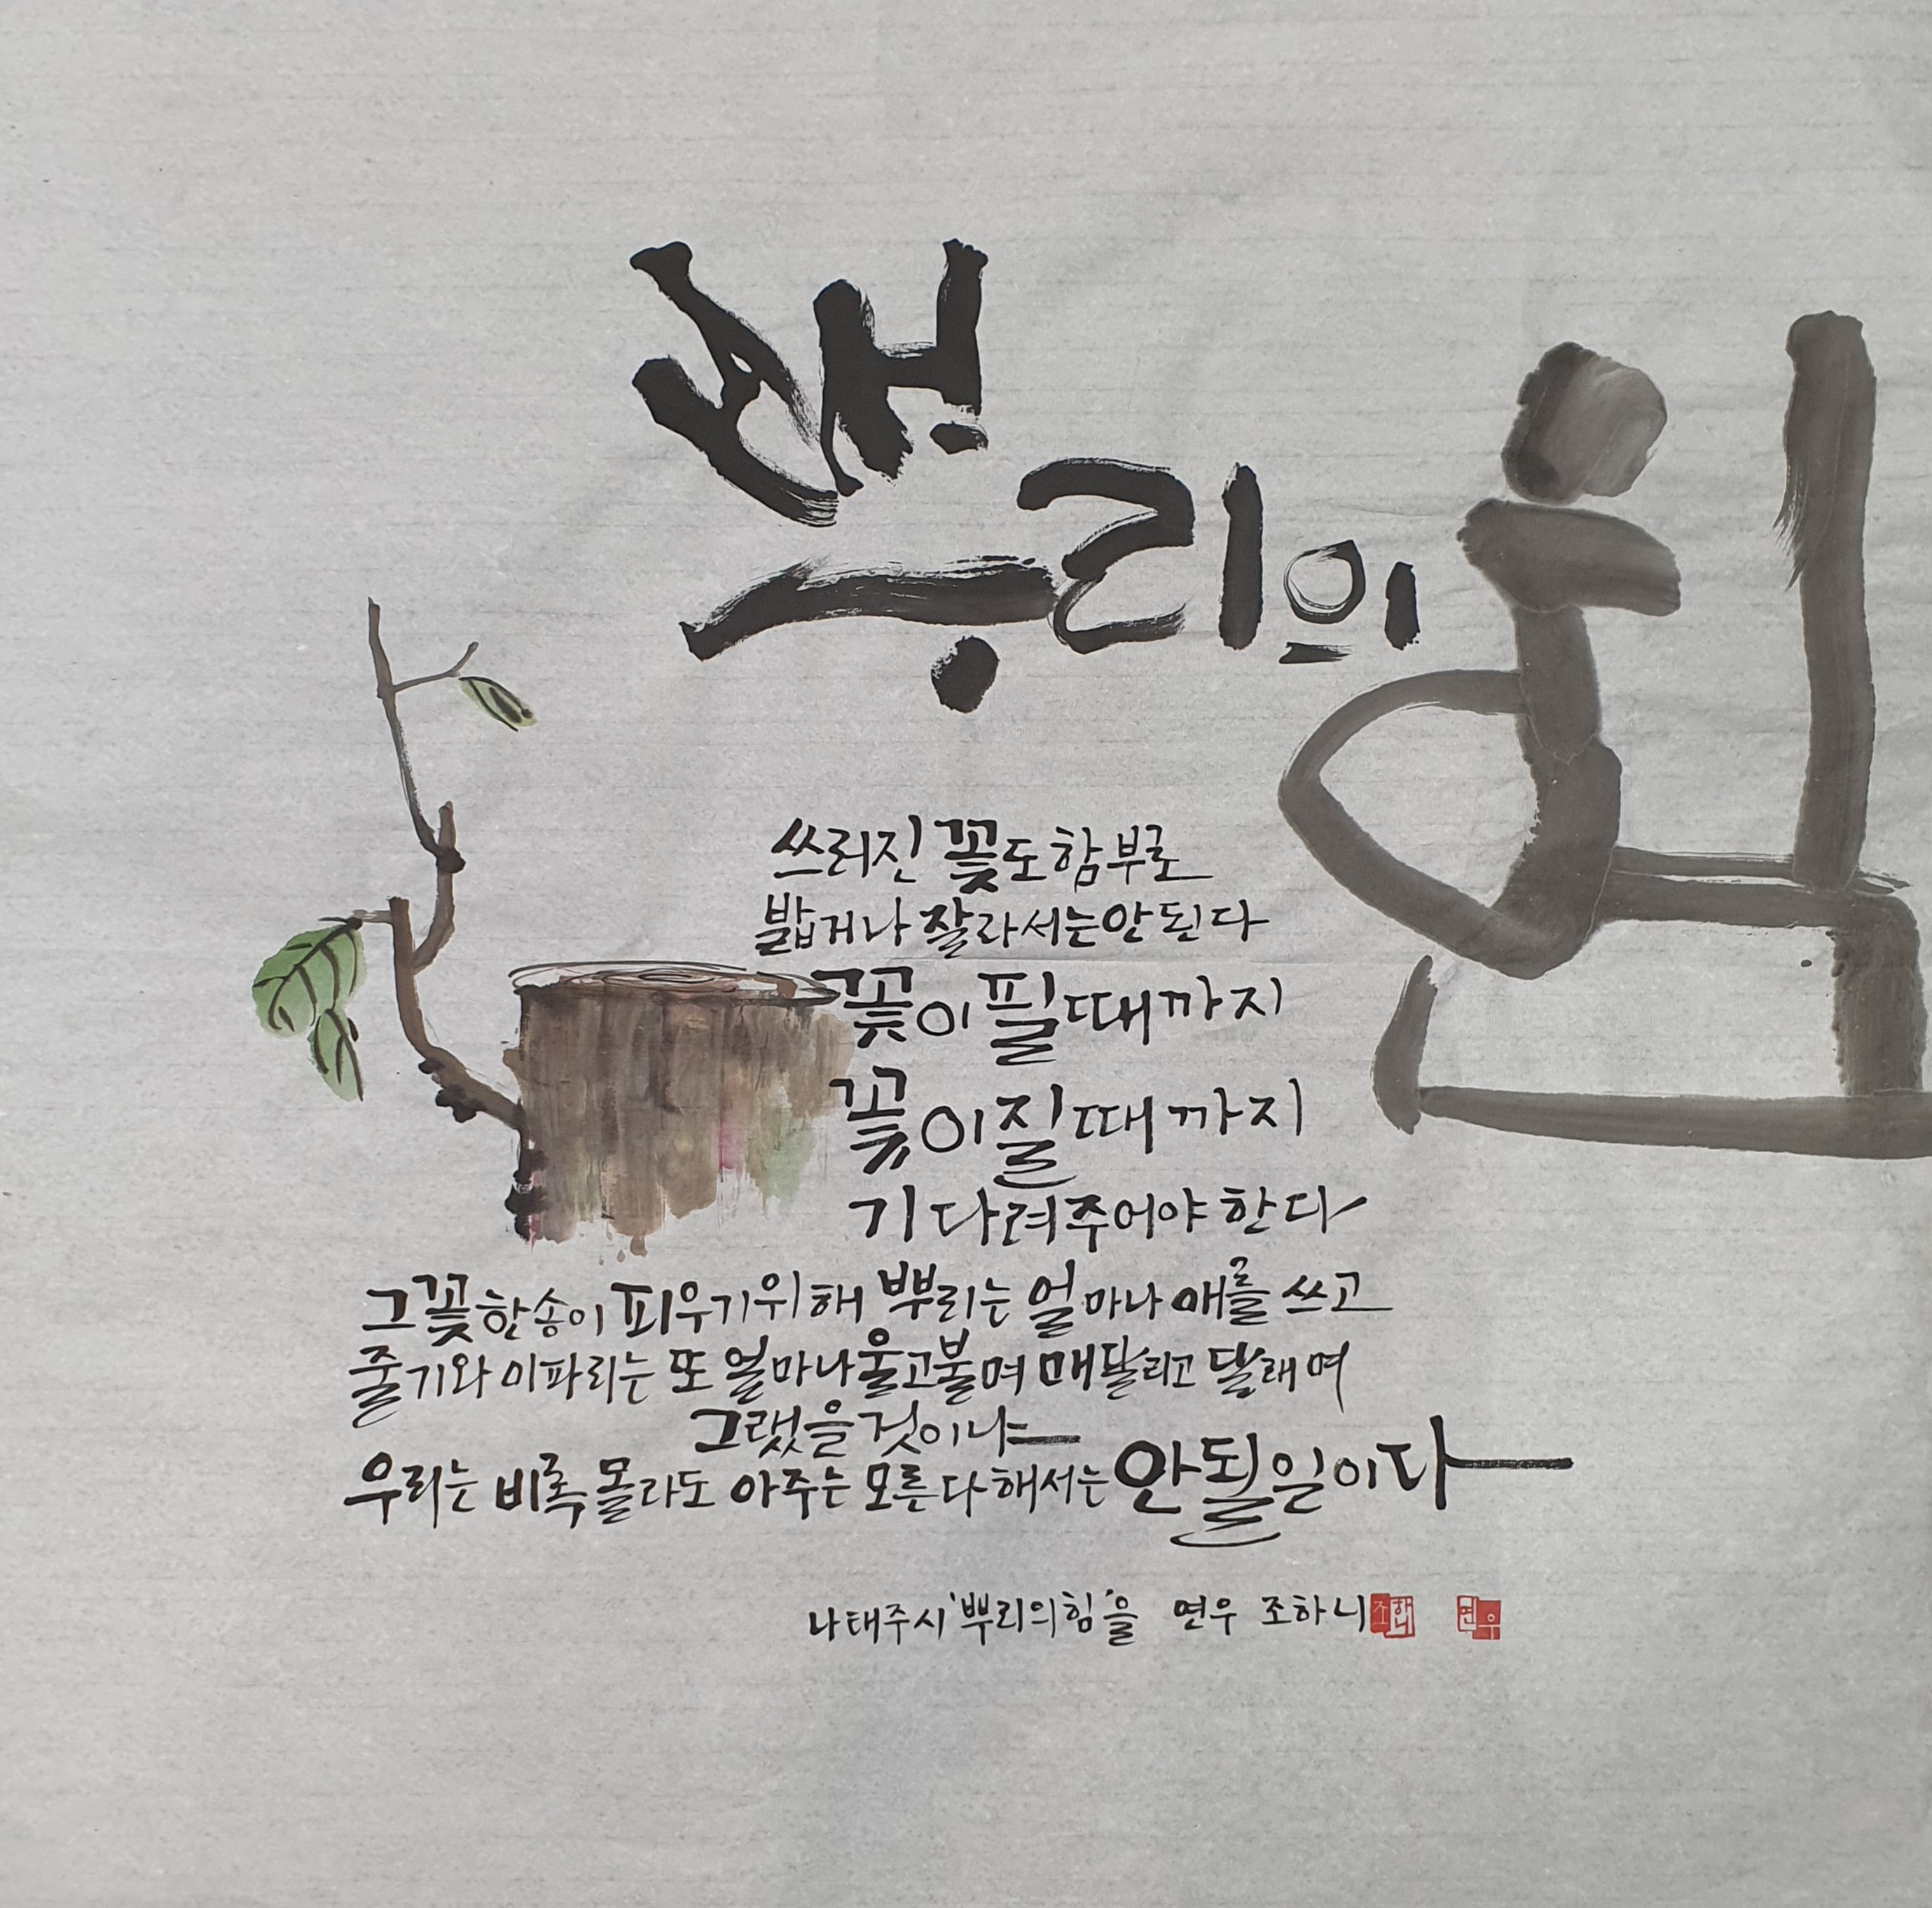 뿌리의 힘
쓰러진 꽃도 함부로
밟거나 잘라서는 안 된다
꽃이 필 때까지
꽃이 질 때까지
기다려 주어야 한다
그 꽃 한 송이 피우기 위해 뿌리는 얼마나 애를 쓰고
줄기와 이파리는 또 얼마나 울고불며 매달리고 달래며
그랬을 것이냐
우리는 비록 몰라도 아주는 모른다 해서는 안 될 일이다
나태주 시 '뿌리의 힘'을 연우 조하니 조하니 연우